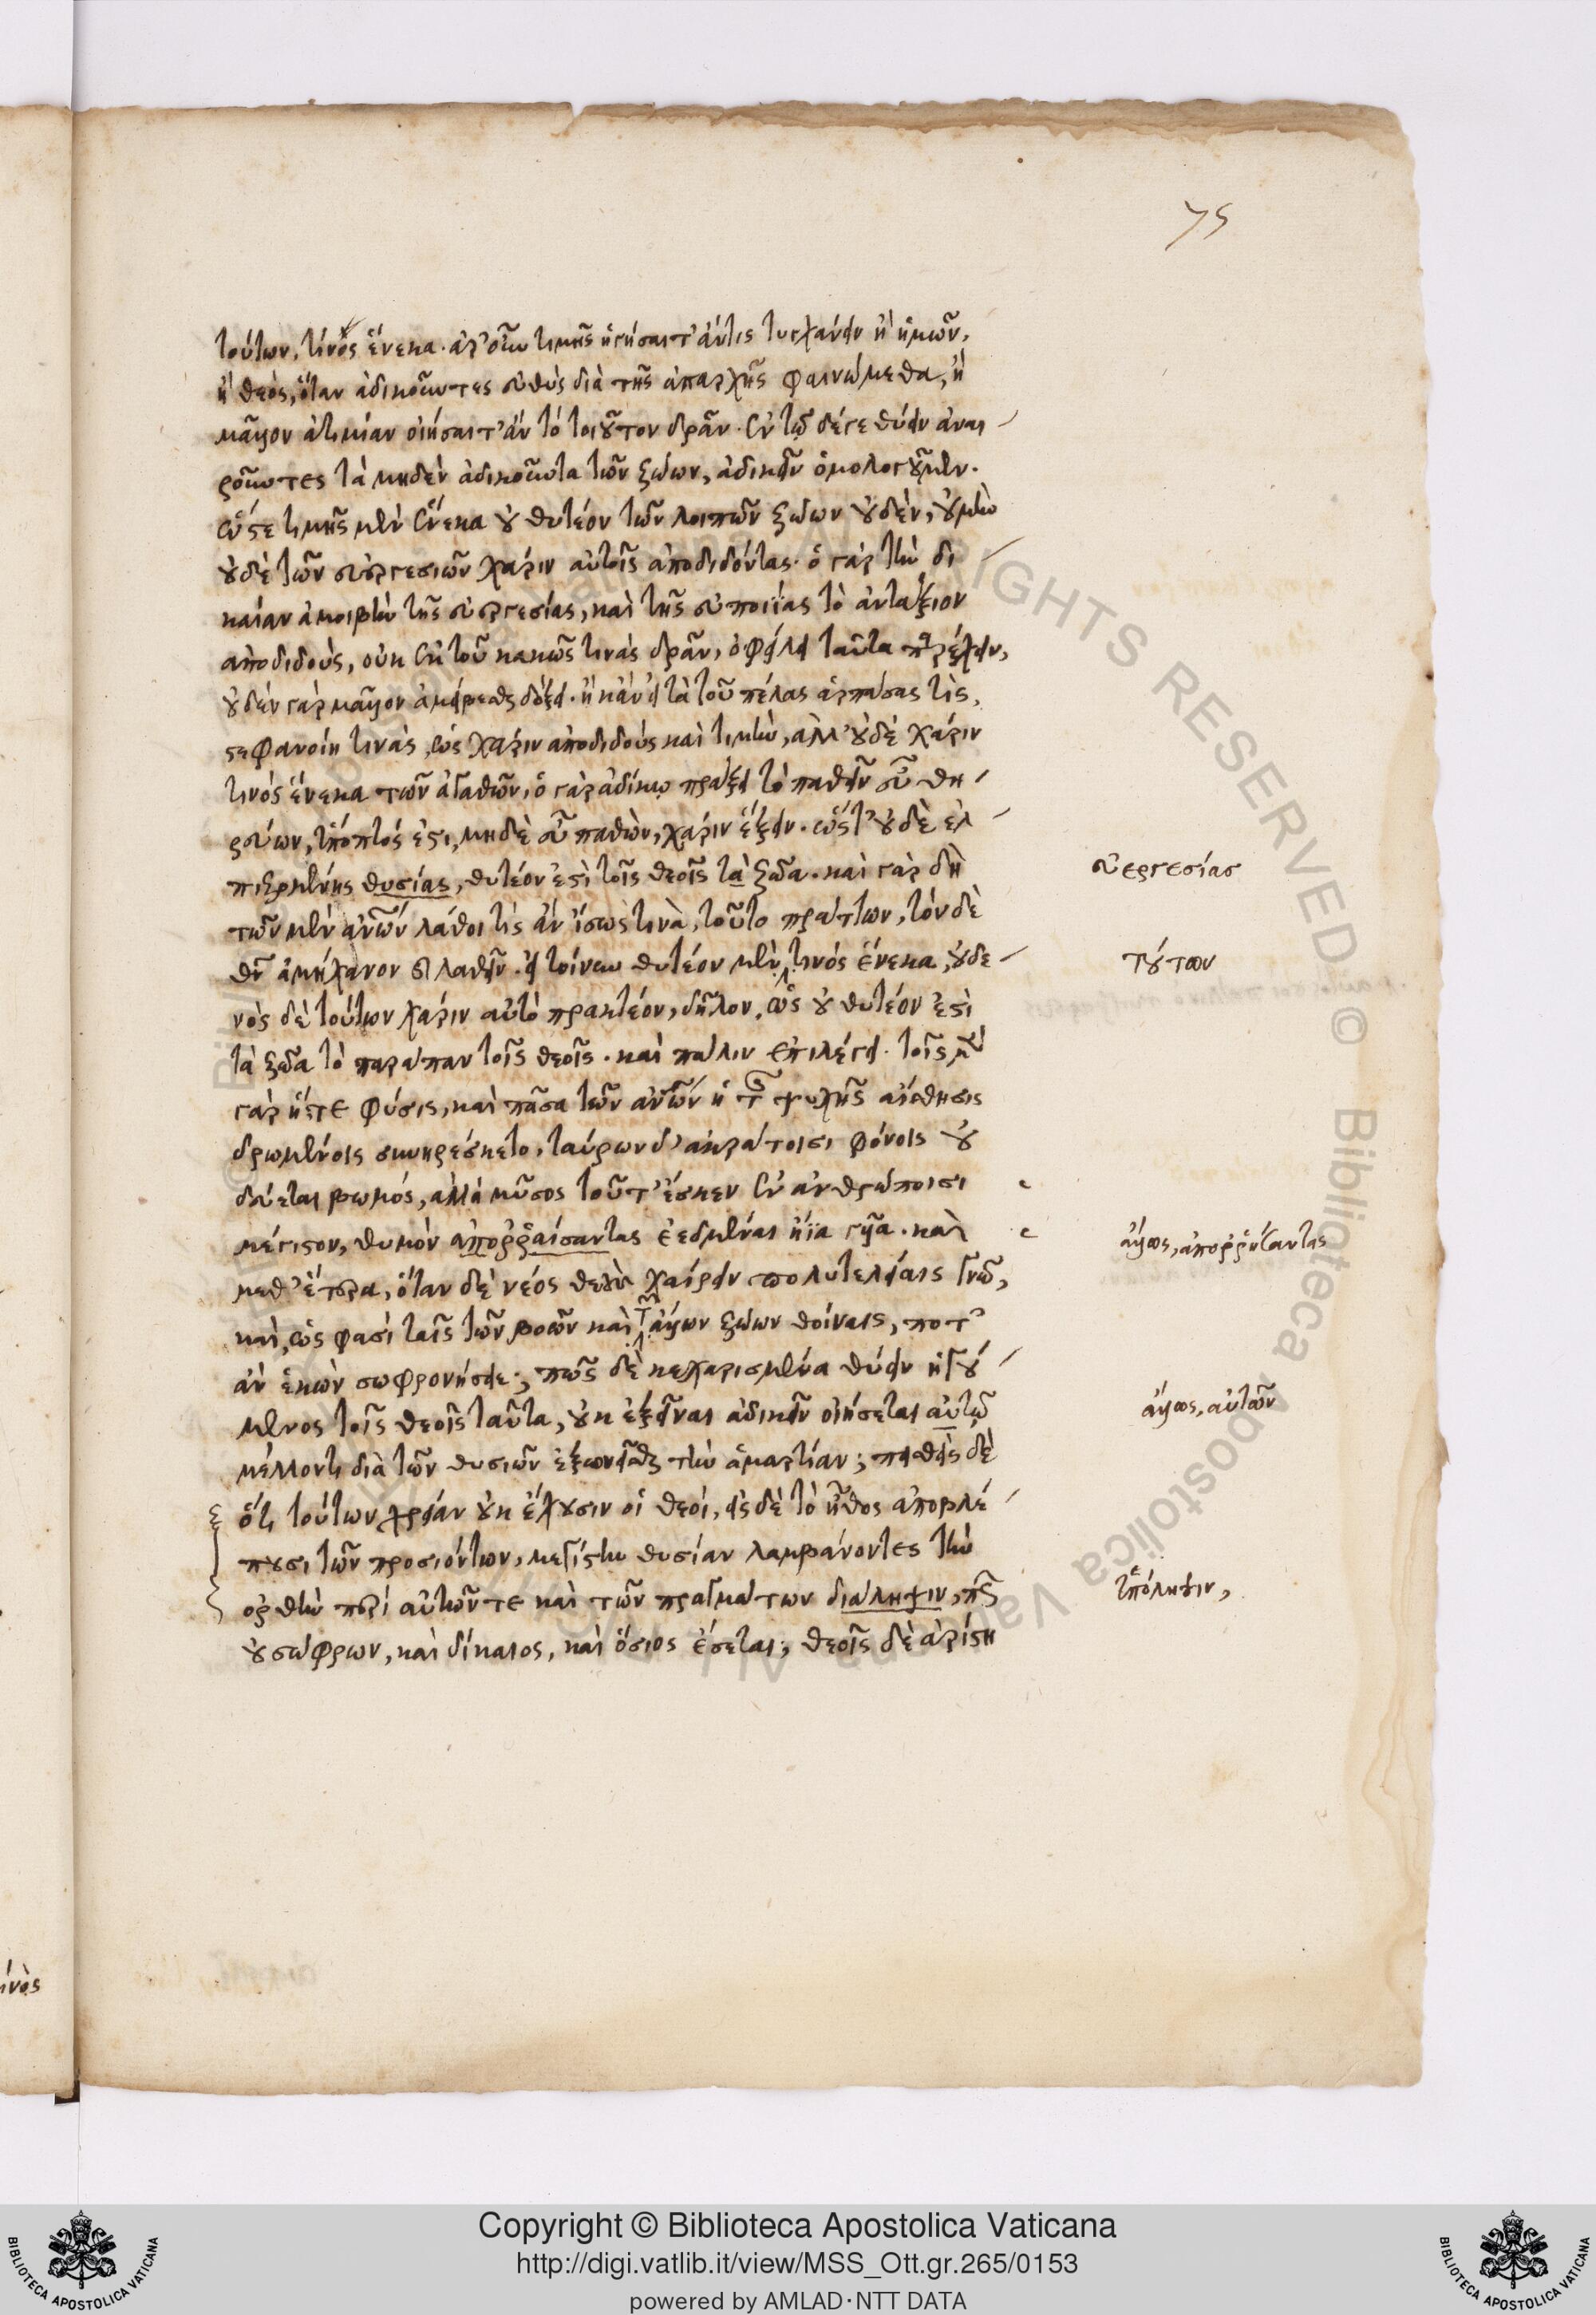 75
τούτων. τίνος ἕνεκα. ἆρ' οὖν τιμῆς ἡγήσαιτ' ἄν τις τυγχάνειν ἢ ἡμῶν,
ἢ θεὸς, ὅταν ἀδικοῦντες εὐθὺς διὰ τῆς ἀπαρχῆς φαινώμεθα, ἢ
μᾶλλον ἀτιμίαν οἰήσαιτ' ἂν τὸ τοιοῦτον δρᾶν. ἐν τῷ δέ γε θύειν ἀναι
ροῦντες τὰ μηδὲν ἀδικοῦντα τῶν ζώων, ἀδικεῖν ὁμολογοῦμεν.
ὥστε τιμῆς μὲν ἕνεκα οὐ θυτέον τῶν λοιπῶν ζώων οὐδὲν, οὐ μὴν
οὐδὲ τῶν εὐεργεσιῶν χάριν αὐτοῖς ἀποδιδόντας. ὁ γὰρ τὴν δι
καίαν ἀμοιβὴν τῆς εὐεργεσίας, καὶ τῆς εὐποιΐας τὸ ἀντάξιον
ἀποδιδοὺς, οὐκ ἐκ τοῦ κακῶς τινὰς δρᾶν, ὀφείλει ταῦτα παρέχειν,
οὐδὲν γὰρ μᾶλλον ἀμείβεσθαι δόξει. ἢ κἂν εἰ τὰ τοῦ πέλας ἁρπάσας τὶς,
στεφανοίη τινὰς, ὡς χάριν ἀποδιδοὺς καὶ τιμὴν, ἀλλ' οὐδὲ χάριν
τινὸς ἕνεκα τῶν ἀγαθῶν, ὁ γὰρ ἀδίκῳ πράξει τὸ παθεῖν εὖ θη
ρεύων, ὕποπτός ἐστι, μηδὲ εὖ παθὼν, χάριν ἕξειν. ὥστ' οὐδὲ ἐλ
πιζομένης θυσίας, θυτέον ἐστὶ τοῖς θεοῖς τὰ ζῶα. καὶ γὰρ δὴ
εὐεργεσίας
τῶν μὲν ἀνῶν λάθοι τὶς ἂν ἴσως τινὰ, τοῦτο πράττων, τὸν δὲ
θν ἀμήχανον διαλαθεῖν. εἰ τοίνυν θυτέον μὲν τινὸς ἕνεκα, οὐδε
τούτων
νὸς δὲ τούτων χάριν αὐτὸ πρακτέον, δῆλον, ὡς οὐ θυτέον ἐστὶ
τὰ ζῶα τὸ παράπαν τοῖς θεοῖς. καὶ πάλιν ἐπιλέγει. τοῖς μὲν
γὰρ ἥ τε φύσις, καὶ πᾶσα τῶν ἀνῶν ἡ τῆς ψυχῆς αἴσθησις
δρωμένοις συνηρέσκετο, ταύρων δ' ἀκράτοισι φόνοις οὐ
δεύεται βωμός, ἀλλὰ μῦσος τοῦτ' ἔσκεν ἐν ἀνθρώποισι
μέγιστον, θυμὸν ἀπορῥαίσαντας ἐεδμέναι ἤϊα γυῖα. καὶ
ἄλλως, ἀποῤῥήξαντας
μεθ' ἕτερα, ὅταν δὲ νέος θεοὺς χαίρειν πολυτελείαις γνῶ,
καὶ, ὡς φασὶ ταῖς τῶν βοῶν καὶ τῶν ἄλλων ζώων θοίναις, ποτ'
ἂν ἑκὼν σωφρονήσειε; πῶς δὲ κεχαρισμένα θύειν ἡγού
μενος τοῖς θεοῖς ταῦτα, οὐκ ἐξεῖναι ἀδικεῖν οἰήσεται αὐτῷ
ἄλλως, αὐτῶν
μέλλοντι διὰ τῶν θυσιῶν ἐξωνεῖσθαι τὴν ἁμαρτίαν; πεισθεὶς δὲ
ὅτι τούτων χρείαν οὐκ ἔχουσιν οἱ θεοί, εἰς δὲ τὸ ἦθος ἀποβλέ
πουσι τῶν προσιόντων, μεγίστην θυσίαν λαμβάνοντες τὴν
ὀρθὴν περὶ αὐτῶν τε καὶ τῶν πραγμάτων διάληψιν, πῶς
ὑπόληψιν,
οὐ σώφρων, καὶ δίκαιος, καὶ ὅσιος ἔσεται; θεοῖς δὲ ἀρίστη
Copyright © Biblioteca Apostolica Vaticana
http://digi.vatlib.it/view/MSS_Ott.gr.265/0153
powered by AMLAD·NTT DATA
BIBLIOTECA APOSTOLICA VATICANA
BIBLIOTECA APOSTOLICA VATICANA